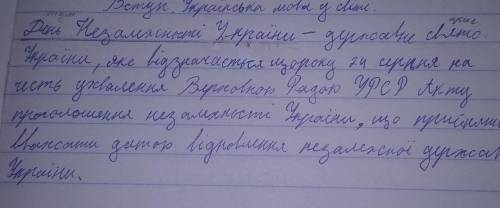 Вступ. Українська мова у світі.
День Незалежності України – державне свято
України, яке відзначається щороку 24 серпня на
честь ухвалення Верховною Радою УРСР Акту
проголошення незалежності України, що прийнято
вважати датою відновлення незалежної держав
України.